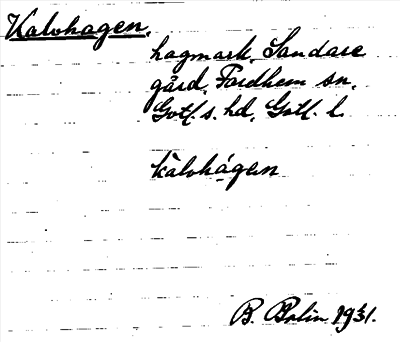 Kalvhagen.
hagmark, Sandare
gård, Fardhem sn,
Gotl. s. hd, Gotl. l.
kàlvhágen
B. Bolin 1931.